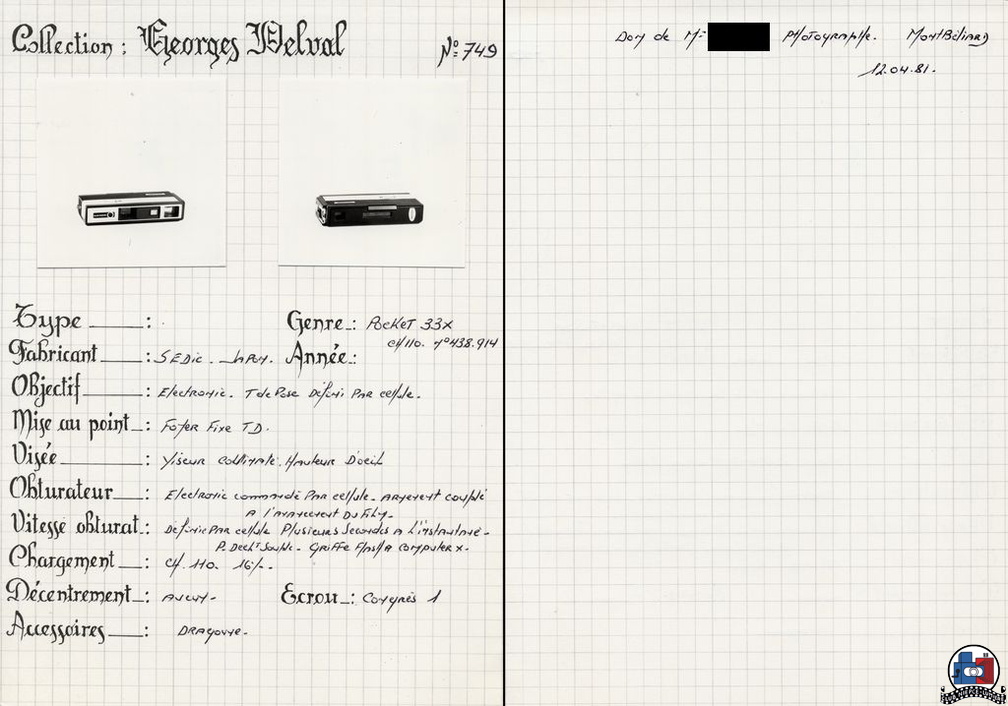 Collection : Georges Delval
N° 749
Type : Genre : Pocket 33x
Ch/110. N°438.914
Fabricant : SEDic. Japon. Année :
Objectif : Electronic. T de Pose Défini Par cellule.
Mise au point : Foyer Fixe TD.
Visée : Viseur Collimaté. Hauteur D'oeil
Obturateur : Electronic commandé Par cellule. Armement couplé
A l'avancement Du Film.
Vitesse obturat. : Définie Par cellule Plusieurs Secondes A L'instantané.
P. Decht Souple. Griffe Flash A computer X.
Chargement : Ch. 110. 16
Décentrement : Aucun. Ecrou : Congrès 1
Accessoires : Dragonne.
Don de Mr Photographe. Montbéliard
12.04.81.